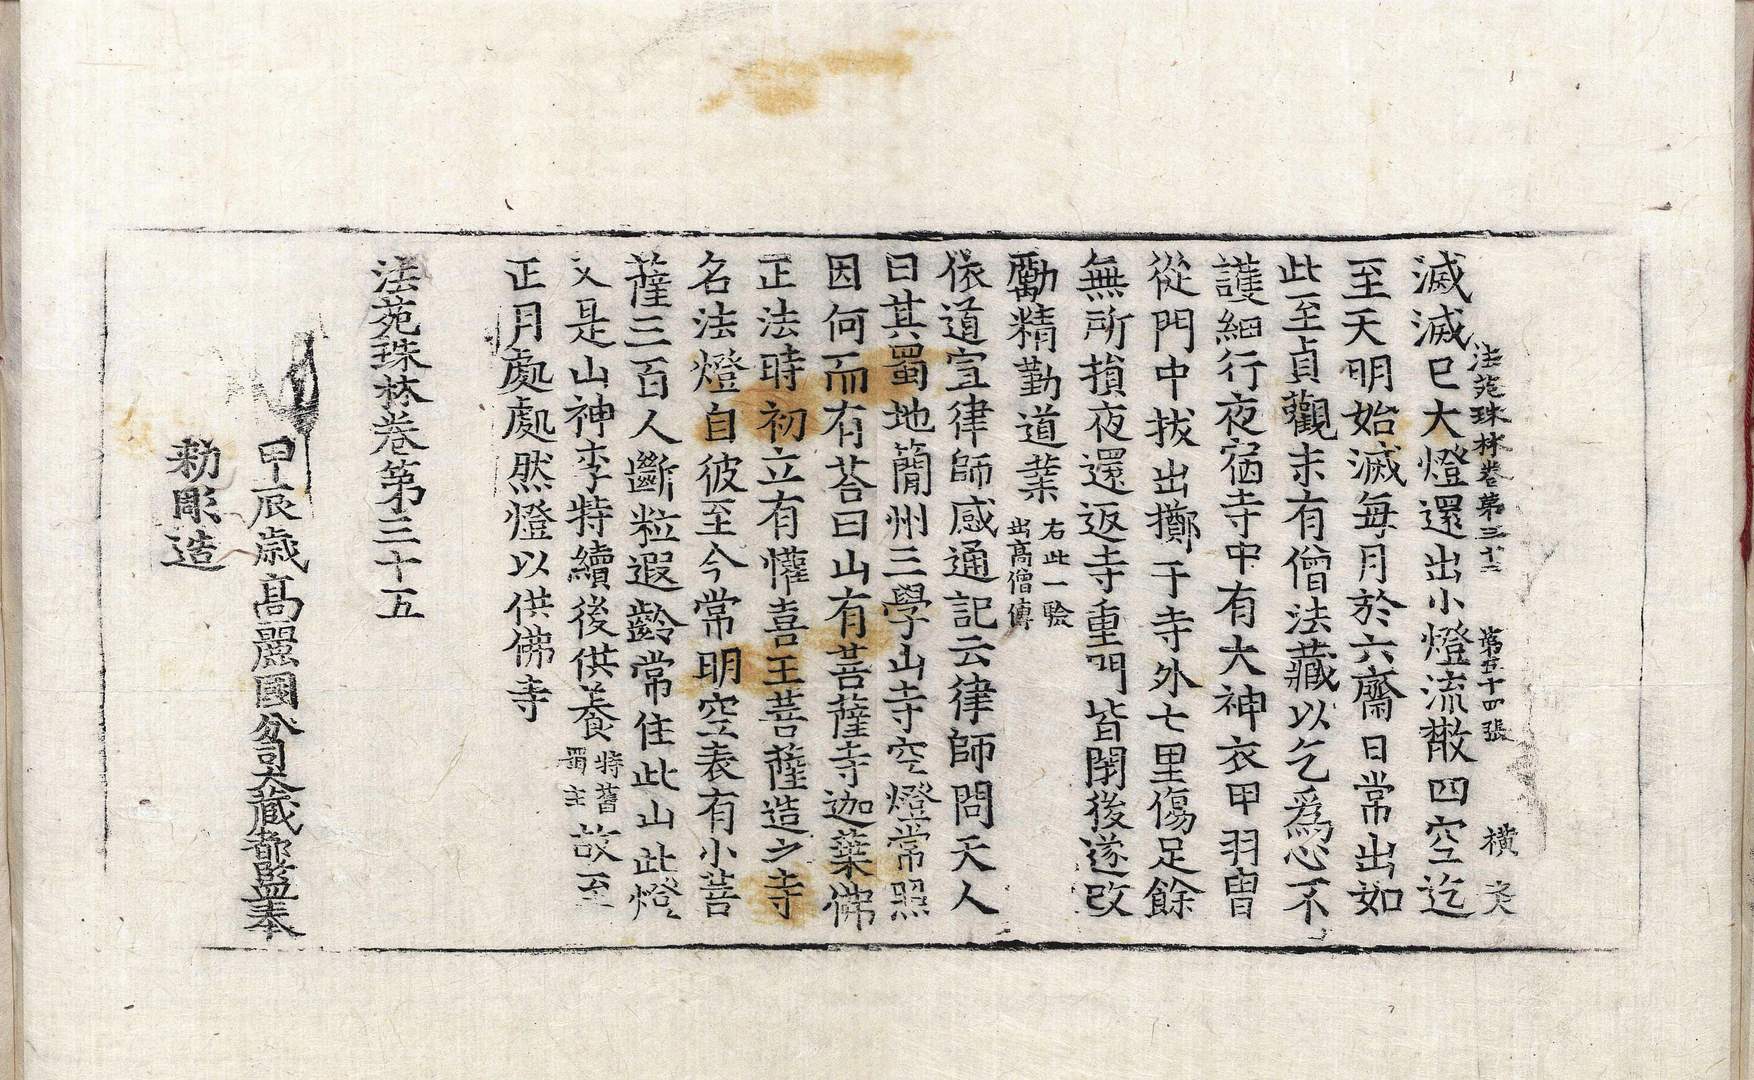 法苑珠林卷第三十五 第五十四張 橫 文
滅滅已大燈還出小燈流散四空迄
至天明始滅每月於六齋日常出如
此至貞觀末有僧法藏以乞爲心不
護細行夜宿寺中有大神衣甲羽冑
從門中拔出擲于寺外七里傷足餘
無所損夜還返寺重門皆閉後遂改
勵精勤道業右此一驗出高僧傳
依道宣律師感通記云律師問天人
曰其蜀地簡州三學山寺空燈常照
因何而有荅曰山有菩薩寺迦葉佛
正法時初立有懽喜王菩薩造之寺
名法燈自彼至今常明空表有小菩
薩三百人斷粒遐齡常住此山此燈
又是山神李特續後供養特舊蜀主故至
正月處處然燈以供佛寺
法苑珠林卷第三十五
甲辰歳高麗國分司大藏都監奉
勅彫造